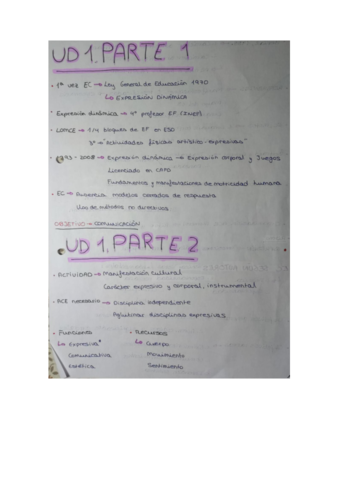 UD 1. PARTE 1
· 1ª vez EC → Ley General de Educación 1970
↳ Expresión Dinámica
· Expresión dinámica → 4º profesor EF (INEF)
· LOMCE → 1.14 bloques de EF en ESO
3º → "Actividades físicas artístico-expresivas"
→ Expresión dinámica → Expresión corporal y Juegos
Licenciado en CAFD
Fundamentos y manifestaciones de motricidad humana
· EC → Ausencia modelos cerrados de respuesta
Uso de métodos no directivos.
OBJETIVO → COMUNICACIÓN
UD 1. PARTE 2
· ACTIVIDAD → Manifestación cultural
Carácter expresivo y corporal, instrumental
necesario → Disciplina independiente
Aglutinar disciplinas expresivas.
· Funciones
↳ Expresiva
Comunicativa
Estética
· Recursos
↳ Cuerpo
Movimiento
Sentimiento